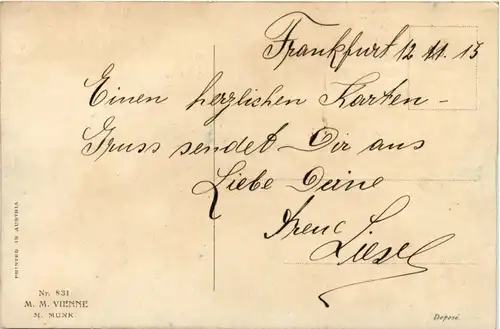 Frankfurt 12 11. 15
Einen herzlichen Karten-
Gruss sendet Dir aus
Liebe Deine
Treue Liesel
PRINTED IN AUSTRIA
Nr. 831
M. M. VIENNE
M. MUNK
Deposé